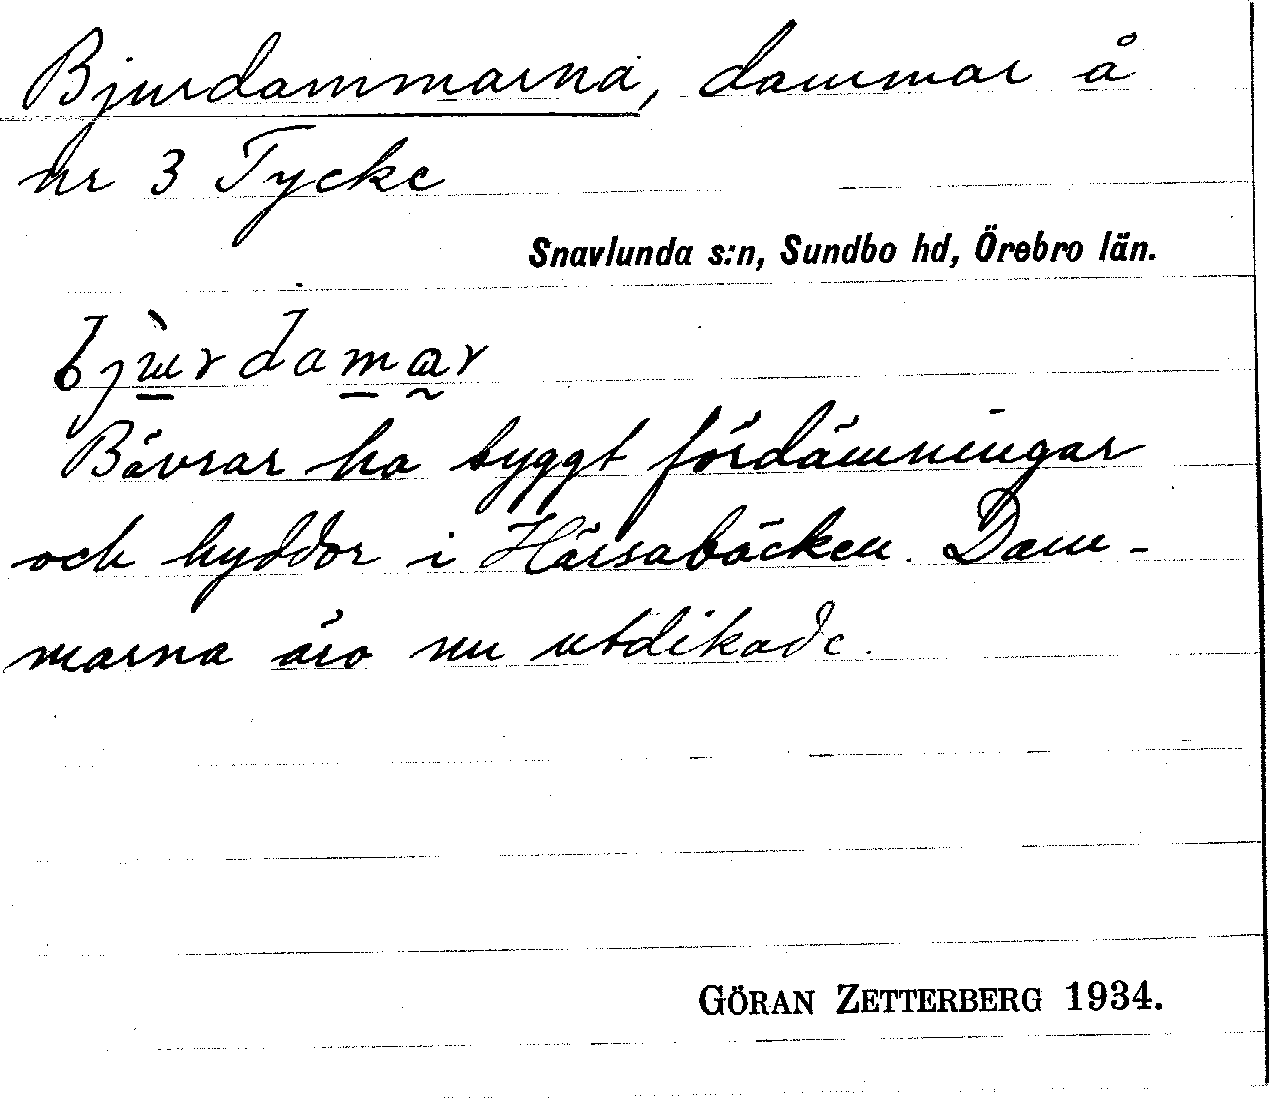 Bjurdammarna, dammar å
nr 3 Tycke
Snavlunda s:n, Sundbo hd, Örebro län.
bjùrdamar
Bävrar ha byggt fördämningar
och hyddor i Härsabäcken. Dam-
marna äro nu utdikade.
GÖRAN ZETTERBERG 1934.